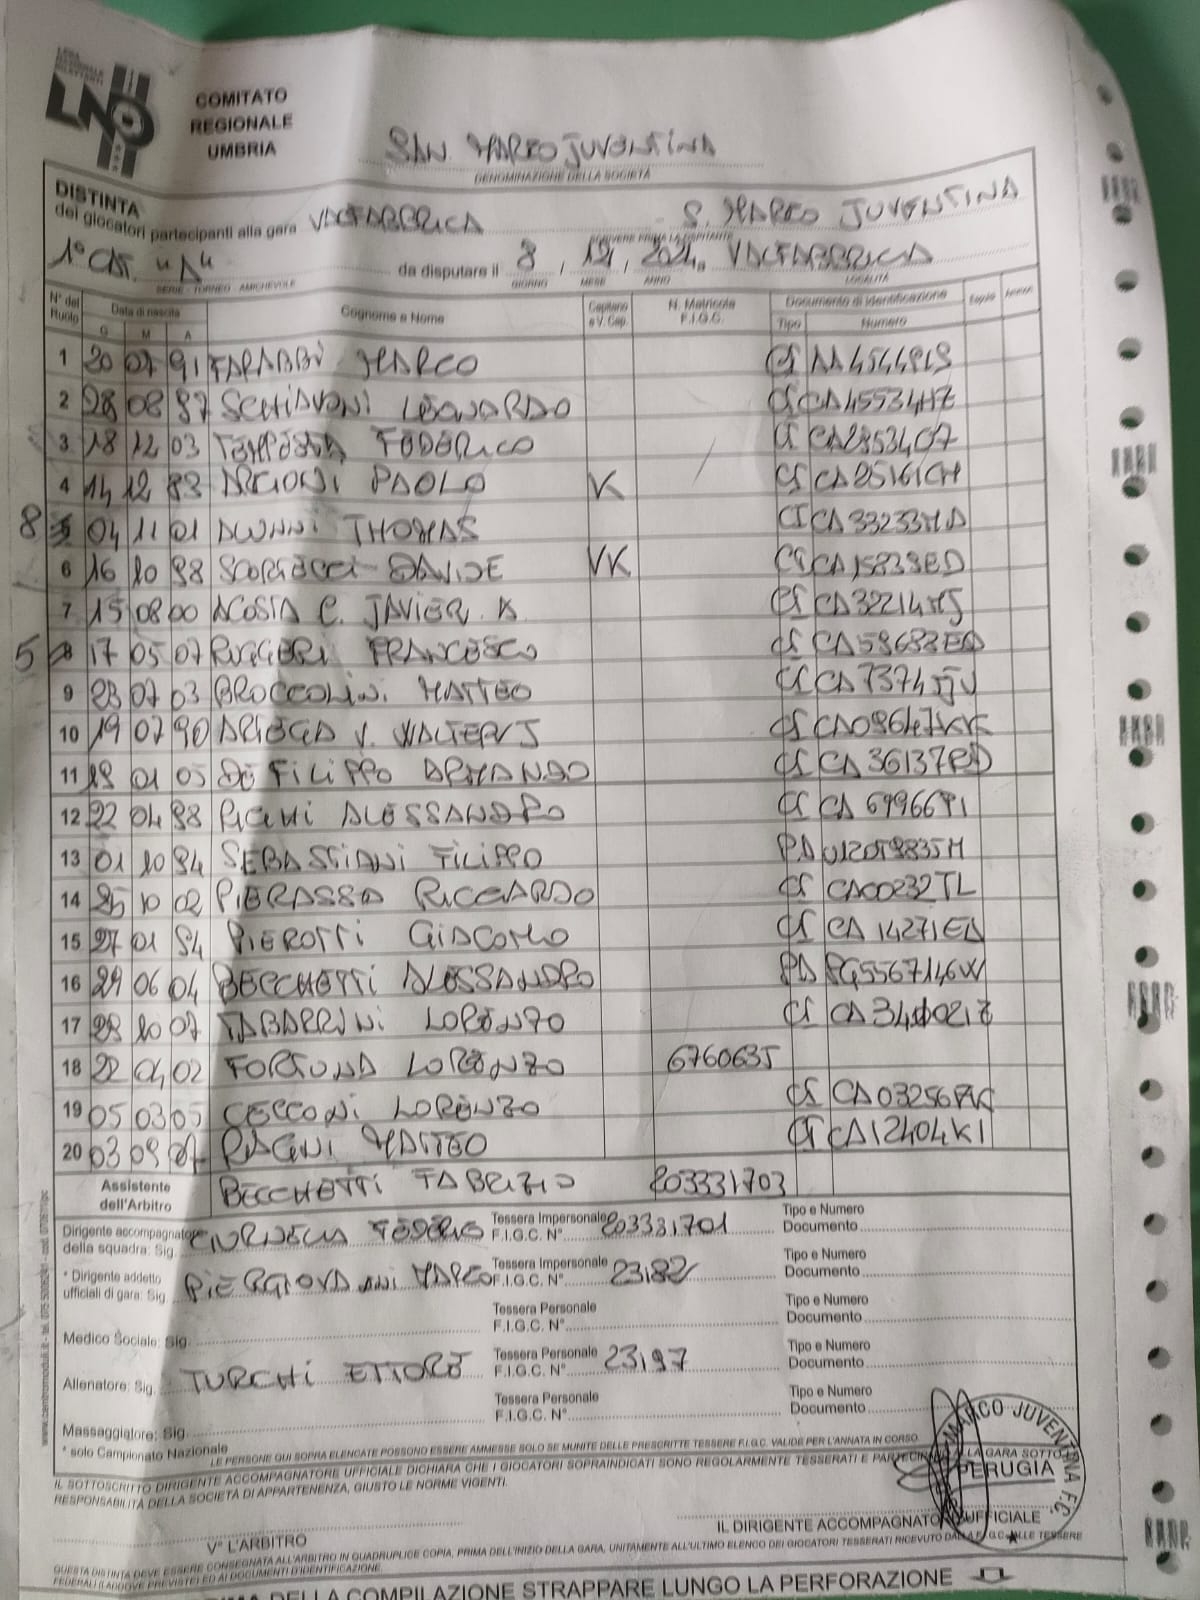 LEGA NAZIONALE DILETTANTI
LND
COMITATO
REGIONALE
UMBRIA
SAN MARCO JUVENTINA
DENOMINAZIONE DELLA SOCIETÀ
DISTINTA
dei giocatori partecipanti alla gara VALFABBRICA S. MARCO JUVENTINA
SCRIVERE PRIMA LA OSPITANTE
1° CAT. "A" da disputare il 8 / 12 / 2024 VALFABBRICA
SERIE - TORNEO - AMICHEVOLE GIORNO MESE ANNO LOCALITÀ
N° del Ruolo Data di nascita Cognome e Nome Capitano e V. Cap. N. Matricola F.I.G.C. Documento di identificazione
G M A Tipo Numero
1 20 07 91 FARABBI MARCO CI
2 28 08 97 SCHIAVONI LEONARDO CI CA45534HZ
3 18 12 03 TEMPESTA FEDERICO CI
4 14 12 93 ARGIONI PAOLO K CI CA25161CH
8 5 04 11 01 ALUNNI THOMAS CI CA33233MA
6 16 10 98 DAVIDE VK CI CA15839ED
7 15 08 00 ACOSTA C. JAVIER A. CI CA32214MJ
5 8 17 05 07 RUGGERI FRANCESCO CI
9 23 07 03 BROCCOLINI MATTEO CI
10 19 07 90 V. CI CA09647KK
11 01 05 DE FILIPPO ARMANDO CI CA36137PD
12 22 04 98 ALESSANDRO CI
13 01 10 94 SEBASTIANI FILIPPO PA
14 25 10 02 PIERASSA RICCARDO CI CA00232TL
15 27 01 94 PIEROTTI GIACOMO CI CA14271EA
16 29 06 04 BECCHETTI ALESSANDRO PA PG5567146W
17 28 10 07 TABARRINI LORENZO CI
18 22 04 02 FORTUNA LORENZO 6760635
19 05 03 05 CECCONI LORENZO CI
20 03 09 07 PAGNI MATTEO CI CA12404KI
Assistente
dell'Arbitro BECCHETTI FABRIZIO 203331703
Dirigente accompagnatore Tessera Impersonale Tipo e Numero
della squadra: Sig. F.I.G.C. N° 203331701 Documento
* Dirigente addetto Tessera Impersonale Tipo e Numero
ufficiali di gara: Sig. PIERGIOVANNI MARCO F.I.G.C. N° 23182 Documento
Tessera Personale Tipo e Numero
Medico Sociale: Sig. F.I.G.C. N° Documento
Tessera Personale Tipo e Numero
Allenatore: Sig. TURCHI ETTORE F.I.G.C. N° 23197 Documento
Tessera Personale Tipo e Numero
Massaggiatore: Sig. F.I.G.C. N° Documento
* solo Campionato Nazionale
LE PERSONE QUI SOPRA ELENCATE POSSONO ESSERE AMMESSE SOLO SE MUNITE DELLE PRESCRITTE TESSERE F.I.G.C. VALIDE PER L'ANNATA IN CORSO.
IL SOTTOSCRITTO DIRIGENTE ACCOMPAGNATORE UFFICIALE DICHIARA CHE I GIOCATORI SOPRAINDICATI SONO REGOLARMENTE TESSERATI E PARTECIPANO ALLA GARA SOTTO LA
RESPONSABILITÀ DELLA SOCIETÀ DI APPARTENENZA, GIUSTO LE NORME VIGENTI.
MARCO JUVENTINA F.C.
PERUGIA
V° L'ARBITRO
IL DIRIGENTE ACCOMPAGNATORE UFFICIALE
QUESTA DISTINTA DEVE ESSERE CONSEGNATA ALL'ARBITRO IN QUADRUPLICE COPIA, PRIMA DELL'INIZIO DELLA GARA, UNITAMENTE ALL'ULTIMO ELENCO DEI GIOCATORI TESSERATI RICEVUTO DALLA F.I.G.C. ALLE TESSERE
FEDERALI (LADDOVE PREVISTE) ED AI DOCUMENTI D'IDENTIFICAZIONE.
DELLA COMPILAZIONE STRAPPARE LUNGO LA PERFORAZIONE